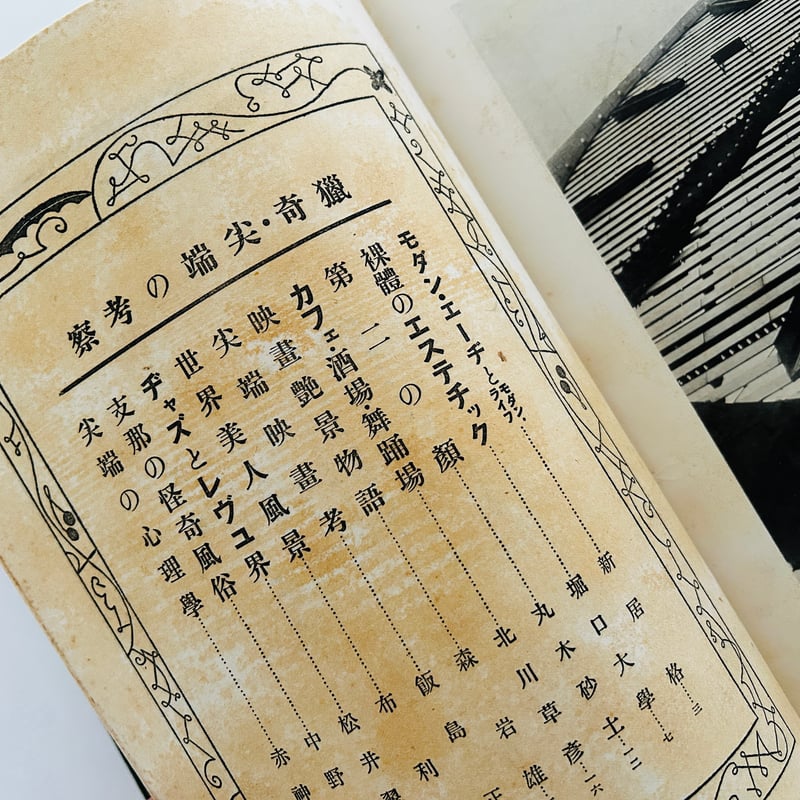 獵奇・尖端の考察
モダン・エーヂとモダン・ライフ………新居格…三
裸體のエステチック………堀口大學…七
第二の顏………丸木砂土…一二
カフェ・酒場・舞踊場………北川草彦…一六
映畫艷景物語………森岩雄
尖端映畫考………飯島正
世界美人風景………布利
ヂャズとレヴユ界………松井翠
支那の怪奇風俗………中野
尖端の心理學………赤神